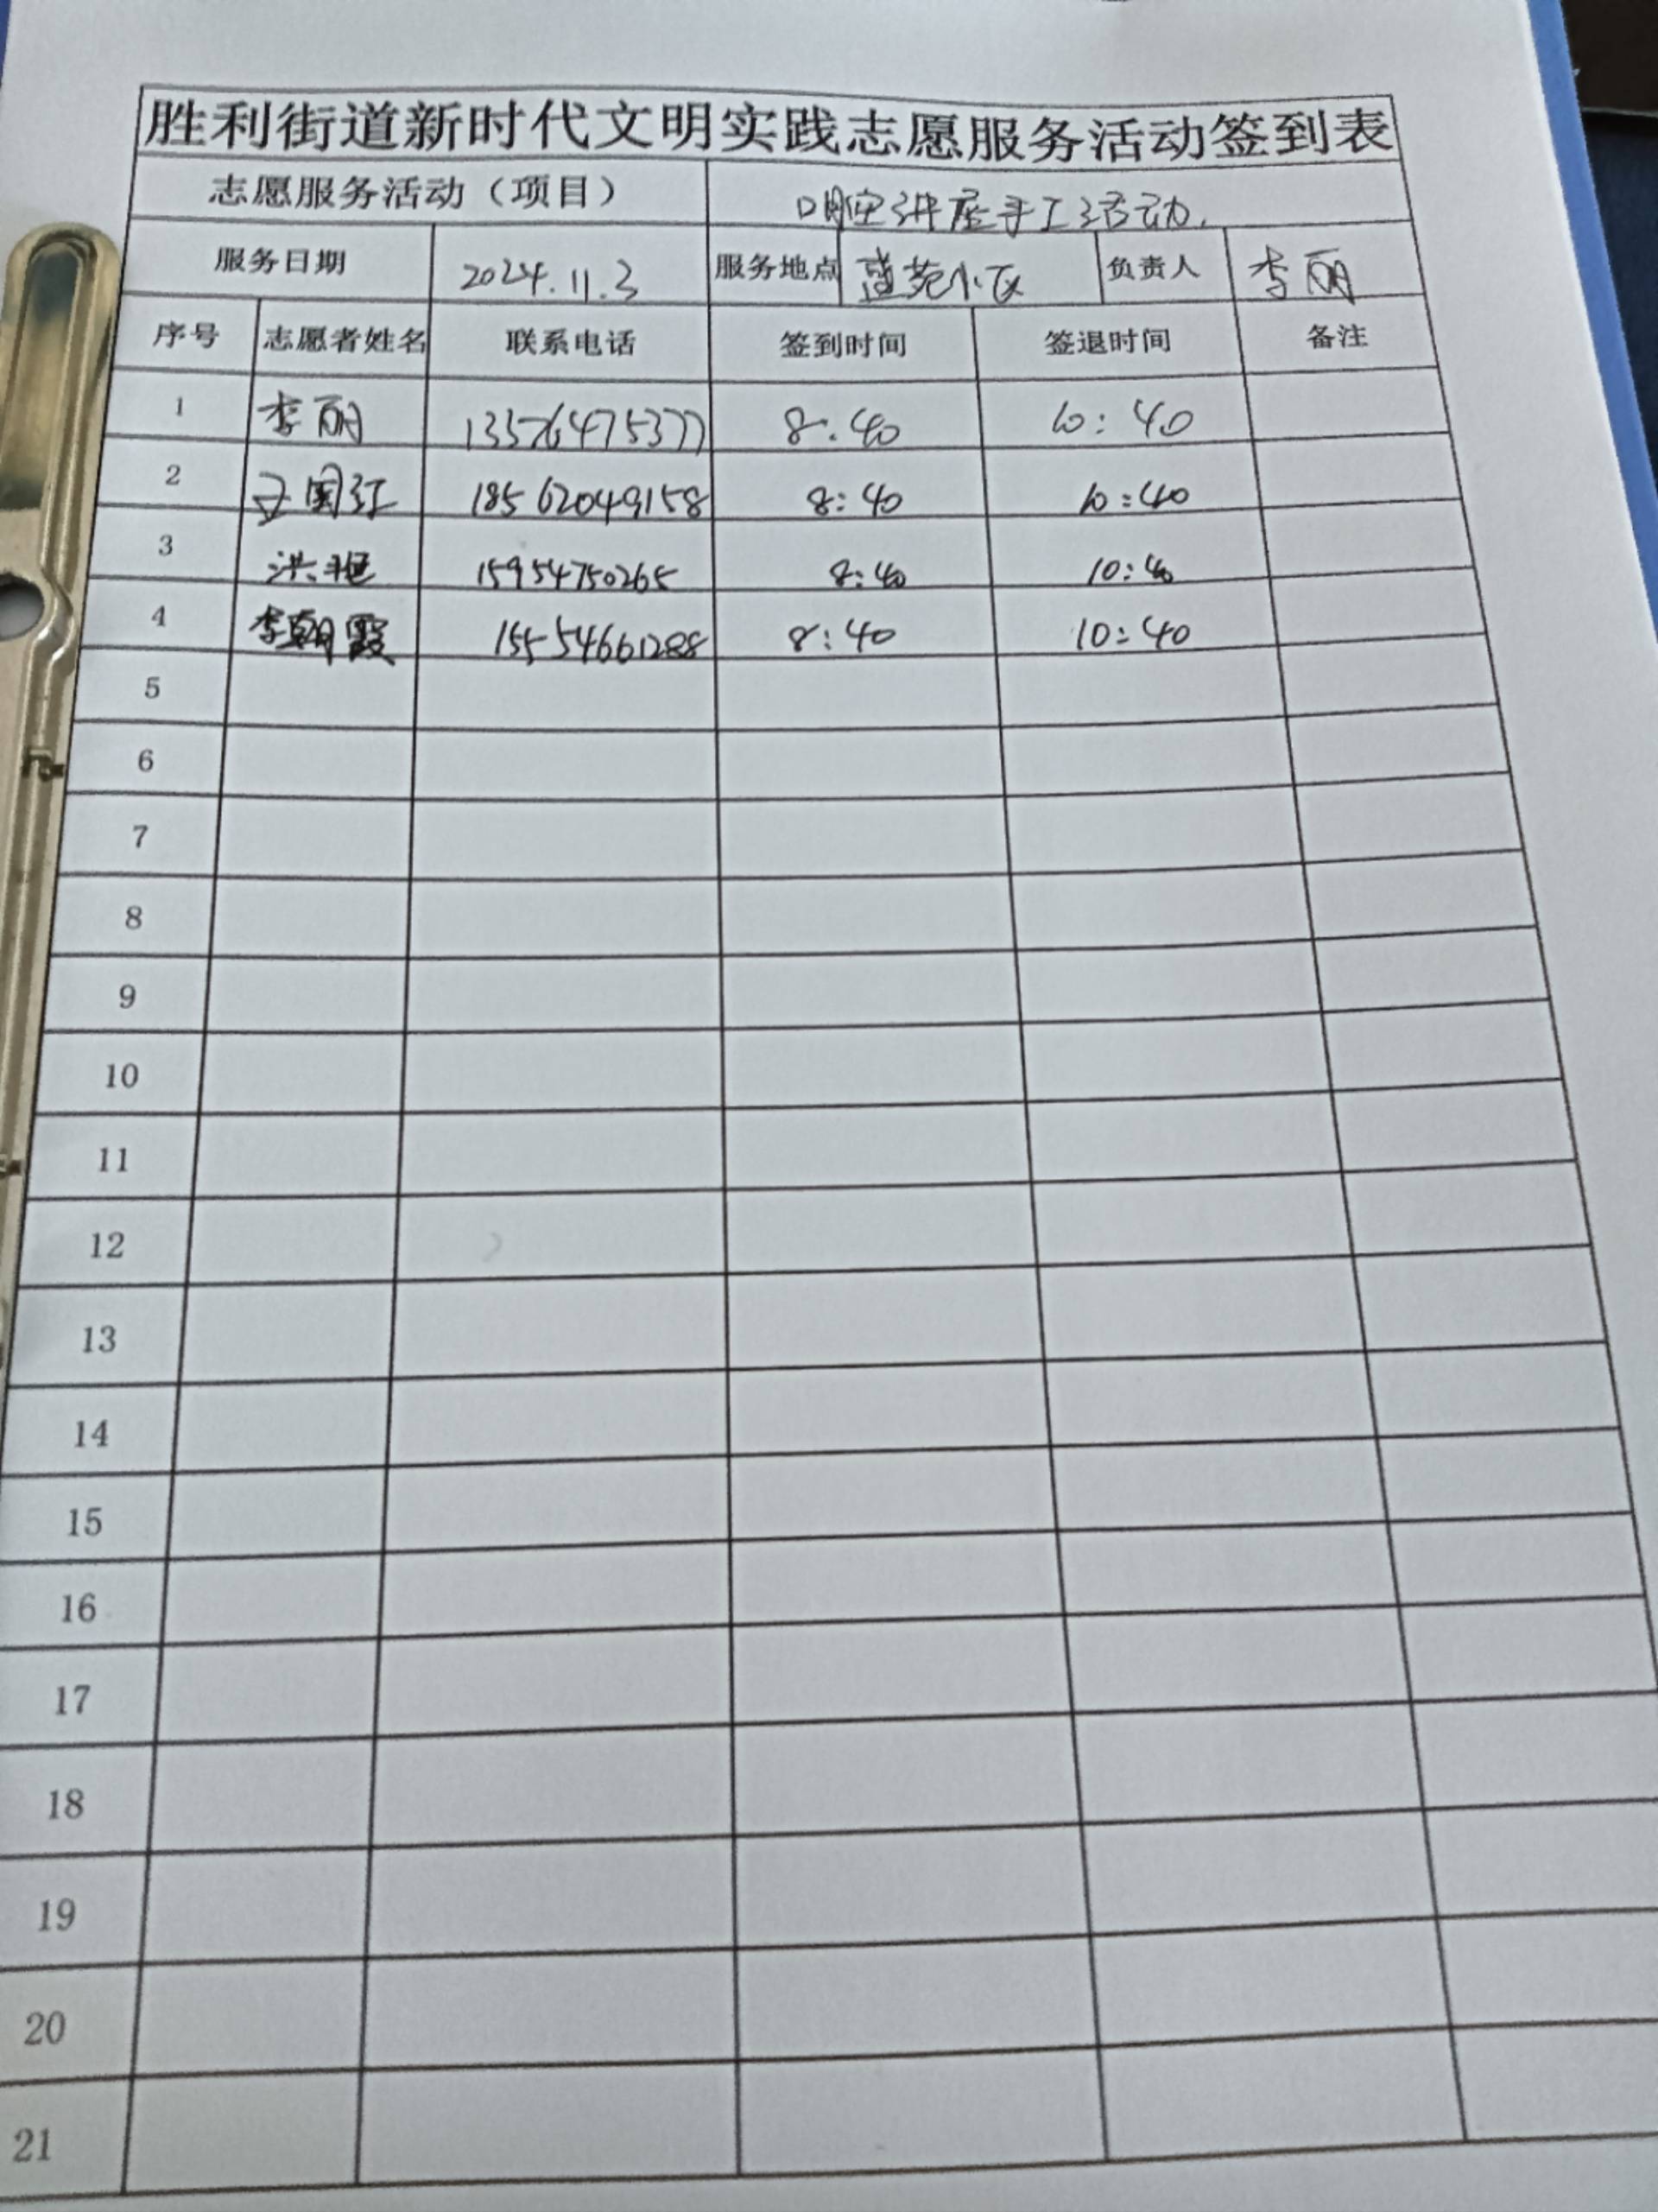 胜利街道新时代文明实践志愿服务活动签到表
志愿服务活动（项目） 口腔讲座手工活动.
服务日期 2024.11.3 服务地点 蓝苑小区 负责人 李丽
序号 志愿者姓名 联系电话 签到时间 签退时间 备注
1 李丽 13576475377 8.40 10:40
2 国红 18562049158 8:40 10:40
3 洪 15954750265 8:40 10:40
4 李朝霞 15554661288 8:40 10:40
5
6
7
8
9
10
11
12
13
14
15
16
17
18
19
20
21